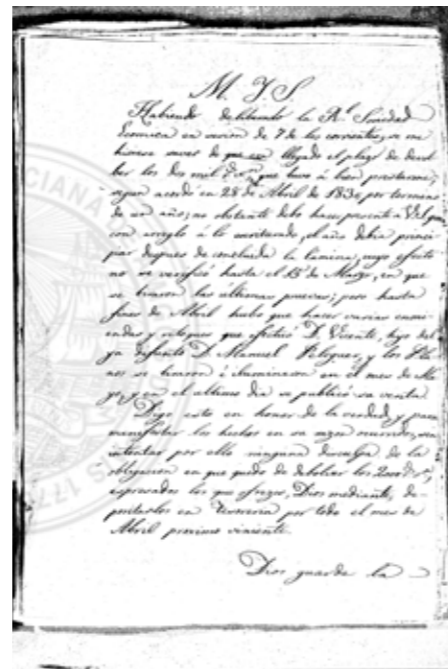 M. Y. S.
Habiendo deliberado la R.l Sociedad
Economica en sesion de 7 de los corrientes, se me
hiciese saver de que es llegado el plazo de devol
ber los dos mil r.s v.n que tuvo á bien prestarme,
segun acordó en 28 de Abril de 1830 por termino
de un año; no obstante debo hacer presente á V.S. que
con arreglo á lo contratado, el año debia princi
piar despues de concluida la lamina, cuyo efecto
no se verificó hasta el 15 de Marzo, en que
se tiraron las últimas pruevas; pero hasta
fines de Abril hubo que hacer varias enmi
endas y retoques que efectuó D. Vicente, hijo del
ya difunto D. Manuel Peleguer, y los Pla
nos se tiraron é iluminaron en el mes de Ma
yo, y en el ultimo dia se publicó su venta
Digo esto en honor de la verdad, y para
manifestar los hechos en su mayor ocurrido, sin
intentar por ello ninguna disculpa de la
obligacion en que quedo de debolver los 2000 r.s v.n
espresados los que ofrezco, Dios mediante, de-
positarlos en Tesoreria por todo el mes de
Abril procsimo viniente.
Dios guarde la
CIANA
1776